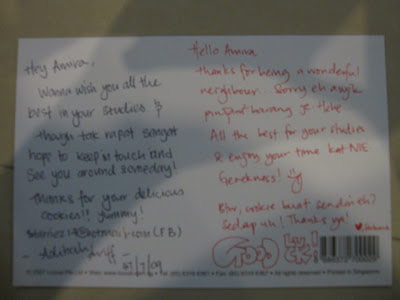 Hey Amira,
Wanna wish you all the
best in your studies &
though tak rapat sangat
hope to keep in touch and
see you around someday!
Thanks for your delicious
cookies!! yummy!
27/7/09
Hello Amira
thanks for being a wonderful
neighbour. Sorry eh asyik
pinjam barang je
All the best for your studies
& enjoy your time kat NIE
Btw, cookie buat sendiri eh?
Sedap uh! Thanks ya!
GOOD LUCK!
Printed in Singapore